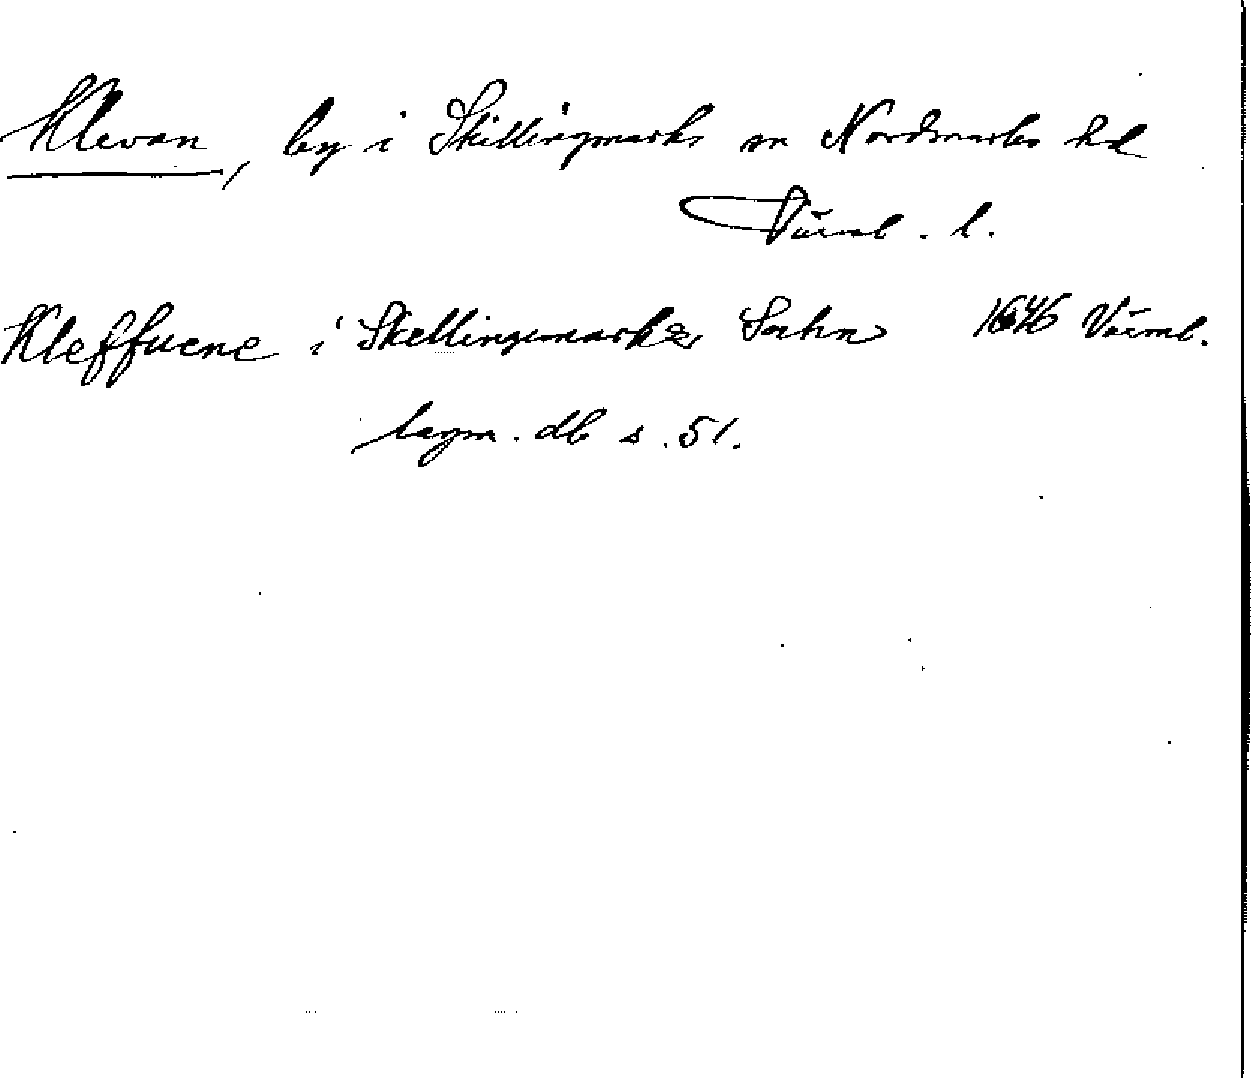 Klevan, by i Skillingmarks sn Nordmarks hd
Värml. l.
Kleffuene i Skellingemarkz Sokn 1646 Värml.
lagm. db s. 51.